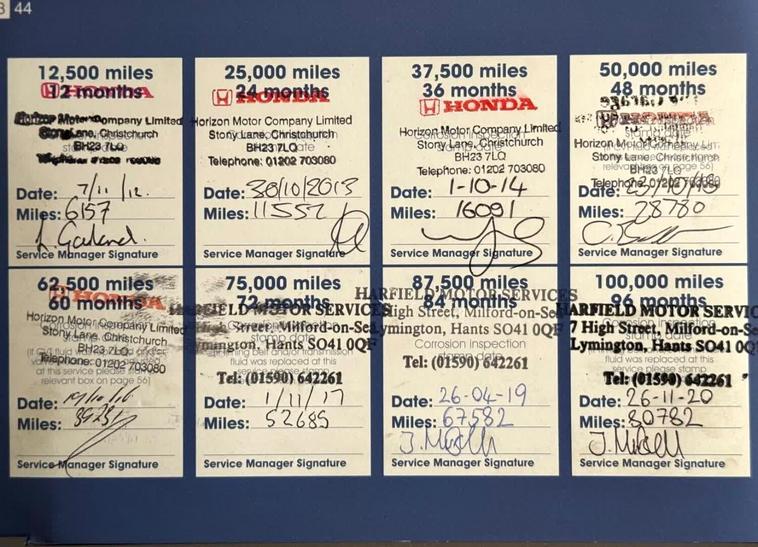 44
12,500 miles
12 months
HONDA
Horizon Motor Company Limited
Stony Lane, Christchurch
BH23 7LQ
Date: 7/11/12.
Miles: 6157
Service Manager Signature
25,000 miles
24 months
HONDA
Horizon Motor Company Limited
Stony Lane, Christchurch
BH23 7LQ
Telephone: 01202 703080
Date: 30/10/2013
Miles: 11557
Service Manager Signature
37,500 miles
36 months
HONDA
Horizon Motor Company Limited
Stony Lane, Christchurch
BH23 7LQ
Telephone: 01202 703080
Date: 1-10-14
Miles: 16091
Service Manager Signature
50,000 miles
48 months
HONDA
Stony Lane, Christchurch
BH23 7LQ
Telephone: 01202 703080
Date:
Miles: 28780
Service Manager Signature
62,500 miles
60 months
HONDA
Horizon Motor Company Limited
Stony Lane, Christchurch
BH23 7LQ
Telephone: 01202 703080
relevant box on page 56)
Date:
Miles:
Service Manager Signature
75,000 miles
72 months
HARFIELD MOTOR SERVICES
High Street, Milford-on-Sea
Lymington, Hants SO41 0QF
fluid was replaced at this
Tel: (01590) 642261
Date: 1/11/17
Miles: 52685
Service Manager Signature
87,500 miles
84 months
HARFIELD MOTOR SERVICES
High Street, Milford-on-Sea
Lymington, Hants SO41 0QF
Corrosion inspection
stamp date
Tel: (01590) 642261
Date: 26-04-19
Miles: 67582
Service Manager Signature
100,000 miles
96 months
HARFIELD MOTOR SERVIC
7 High Street, Milford-on-Se
Lymington, Hants SO41 0Q
Tel: (01590) 642261
Date: 26-11-20
Miles: 80782
Service Manager Signature